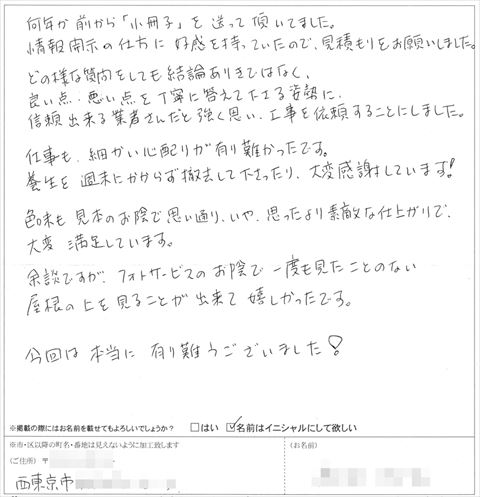 何年か前から「小冊子」を送って頂いてました。
情報開示の仕方に好感を持っていたので、見積もりをお願いしました。
どの様な質問をしても結論ありきではなく、
良い点・悪い点を丁寧に答えて下さる姿勢に、
信頼出来る業者さんだと強く思い、工事を依頼することにしました。
仕事も、細かい心配りが有り難かったです。
養生を週末にかからず撤去して下さったり、大変感謝しています!
色味も見本のお陰で思い通り、いや、思ったより素敵な仕上がりで、
大変満足しています。
余談ですが、フォトサービスのお陰で一度も見たことのない
屋根の上を見ることが出来て嬉しかったです。
今回は本当に有り難うございました!
※掲載の際にはお名前を載せてもよろしいでしょうか? □はい ☑名前はイニシャルにして欲しい
※市・区以降の町名・番地は見えないように加工致します
(ご住所) 〒
西東京市
(お名前)